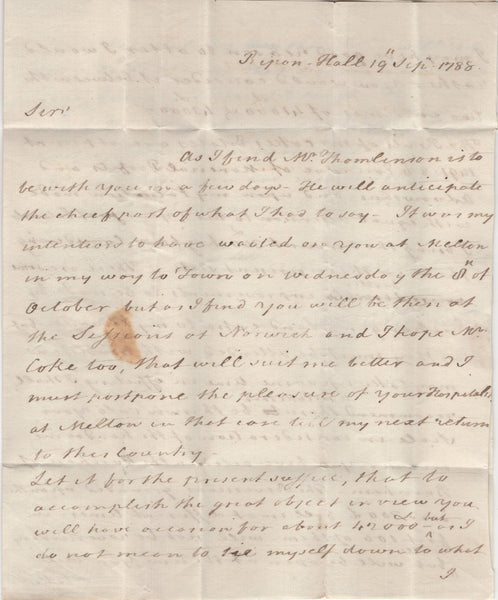 Ripon-Hall 19th Sepr. 1788.
Sir
As I find Mr. Thomlinson is to
be with you in a few days- He will anticipate
the chief part of what I had to say- It was my
intention to have waited on you at Melton
in my way to Town on Wednesday the 8th of
October but as I find you will be then at
the Sessions at Norwich and I hope Mr.
Coke too, that will suit me better and I
must postpone the pleasure of your Hospitality
at Melton in that case till my next return
to this Country-
Let it for the present suffice, that to
accomplish the great object in view you
will have occasion for about 42000- but as I
do not mean to tie myself down to what
I